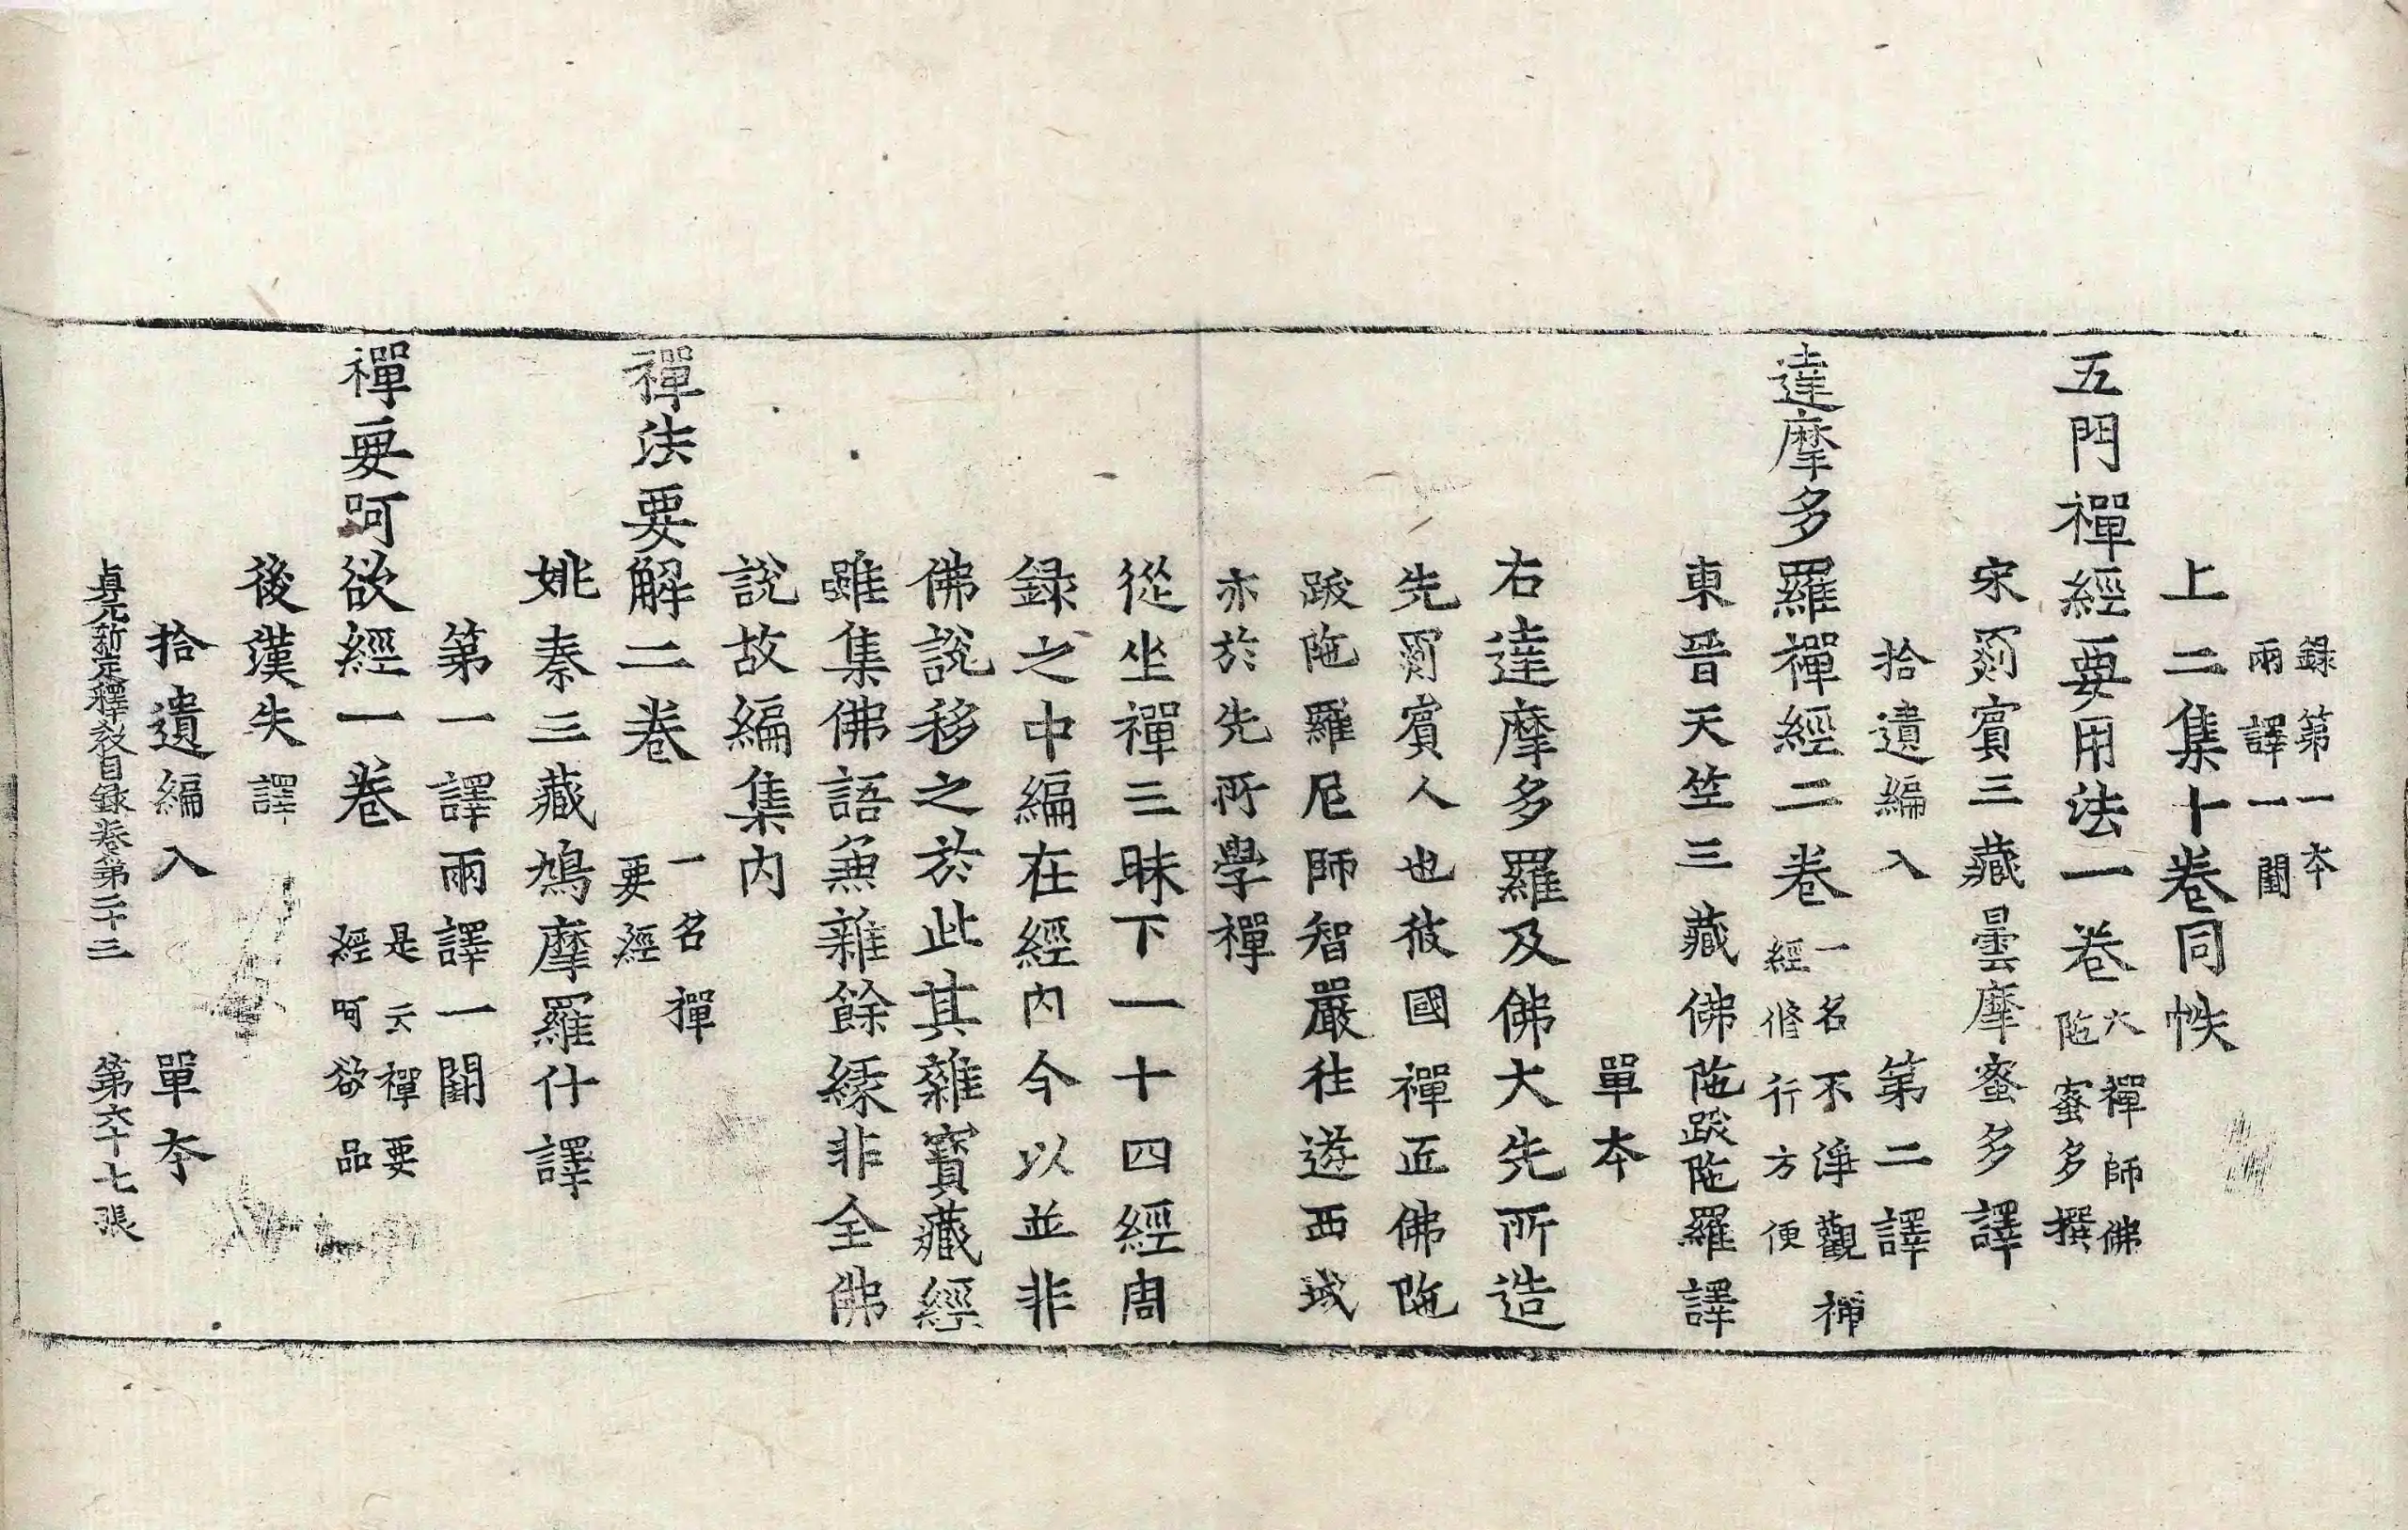 錄第一本
兩譯一闕
上二集十卷同帙
五門禪經要用法一卷 大禪師佛陁蜜多撰
宋罽賓三藏曇摩蜜多譯
拾遺編入 第二譯
達摩多羅禪經二卷 一名不淨觀禪經修行方便
東晉天竺三藏佛陁跋陁羅譯
單本
右達摩多羅及佛大先所造
先罽賓人也彼國禪匠佛陁
跋陁羅尼師智嚴往遊西域
亦於先所學禪
從坐禪三昧下一十四經周
録之中編在經內今以並非
佛說移之於此其雜寶藏經
雖集佛語兼雜餘緣非全佛
說故編集內
禪法要解二卷 一名禪要經
姚秦三藏鳩摩羅什譯
第一譯兩譯一闕
禪要呵欲經一卷 是云禪要經呵欲品
後漢失譯
拾遺編入 單本
貞元新定釋教目録卷第二十三 第六十七張